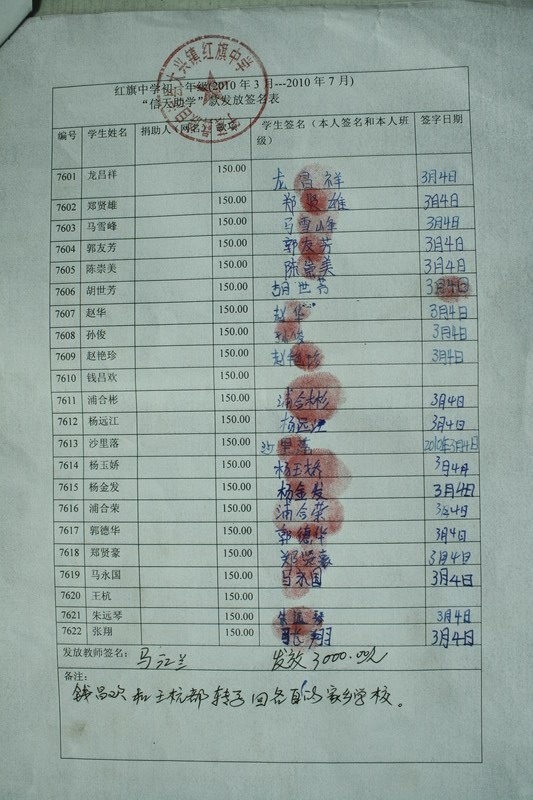 红旗中学初一年级(2010年3月---2010年7月)
“信天助学”款发放签名表
编号 学生姓名 捐助人(网名) 学生签名(本人签名和本人班级) 签字日期
7601 龙昌祥 150.00 龙昌祥 3月4日
7602 郑贤雄 150.00 郑贤雄 3月4日
7603 马雪峰 150.00 马雪峰 3月4日
7604 郭友芳 150.00 郭友芳 3月4日
7605 陈崇美 150.00 陈崇美 3月4日
7606 胡世芳 150.00 胡世芳 3月4日
7607 赵华 150.00 赵华 3月4日
7608 孙俊 150.00 孙俊 3月4日
7609 赵艳珍 150.00 赵艳珍 3月4日
7610 钱昌欢 150.00
7611 浦合彬 150.00 浦合彬 3月4日
7612 杨远江 150.00 杨远江 3月4日
7613 沙里落 150.00 沙里落 2010年3月4日
7614 杨玉娇 150.00 杨玉娇 3月4日
7615 杨金发 150.00 杨金发 3月4日
7616 浦合荣 150.00 浦合荣 3月4日
7617 郭德华 150.00 郭德华 3月4日
7618 郑贤豪 150.00 郑贤豪 3月4日
7619 马永国 150.00 马永国 3月4日
7620 王杭 150.00
7621 朱远琴 150.00 朱远琴 3月4日
7622 张翔 150.00 张翔 3月4日
发放教师签名: 马江兰 发放3000.00元
备注:
钱昌欢和王杭都转了回各自的家乡学校。